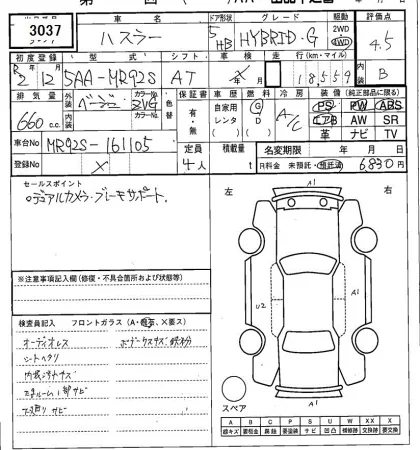 3037
車名
ハスラー
ドア形状
5
HB
グレード
HYBRID・G
駆動
2WD
4WD
評価点
4.5
初度登録
型式
シフト
車検
走行(km・マイル)
内装
R2 12
5AA-MR92S
AT
年 月
18,559
B
排気量
660 c.c.
外装
ベージュ
カラーNo
ZVG
内装
カラーNo
色替
保証書
有・無
車歴
自家用
レンタ
燃料
G
D
冷房
A/C
装備(純正部品に限る)
PS PW ABS
エアB AW SR
革 ナビ TV
車台No
MR92S-161105
登録No
×
定員
4人
積載量
t
名変期限
年 月 日
R料金 未預託・預託済
6830円
セールスポイント
デュアルカメラ・ブレーキサポート.
左
右
A1
U2
A1
※注意事項記入欄(修復・不具合箇所および状態等)
検査員記入 フロントガラス(A・飛石、X要ス)
オーディオレス
シートヘタリ
下廻りサビ
スペア
A B C P S U W X XX
線キズ 要塗装 サビ 凹凸 補修跡 要交換 交換済